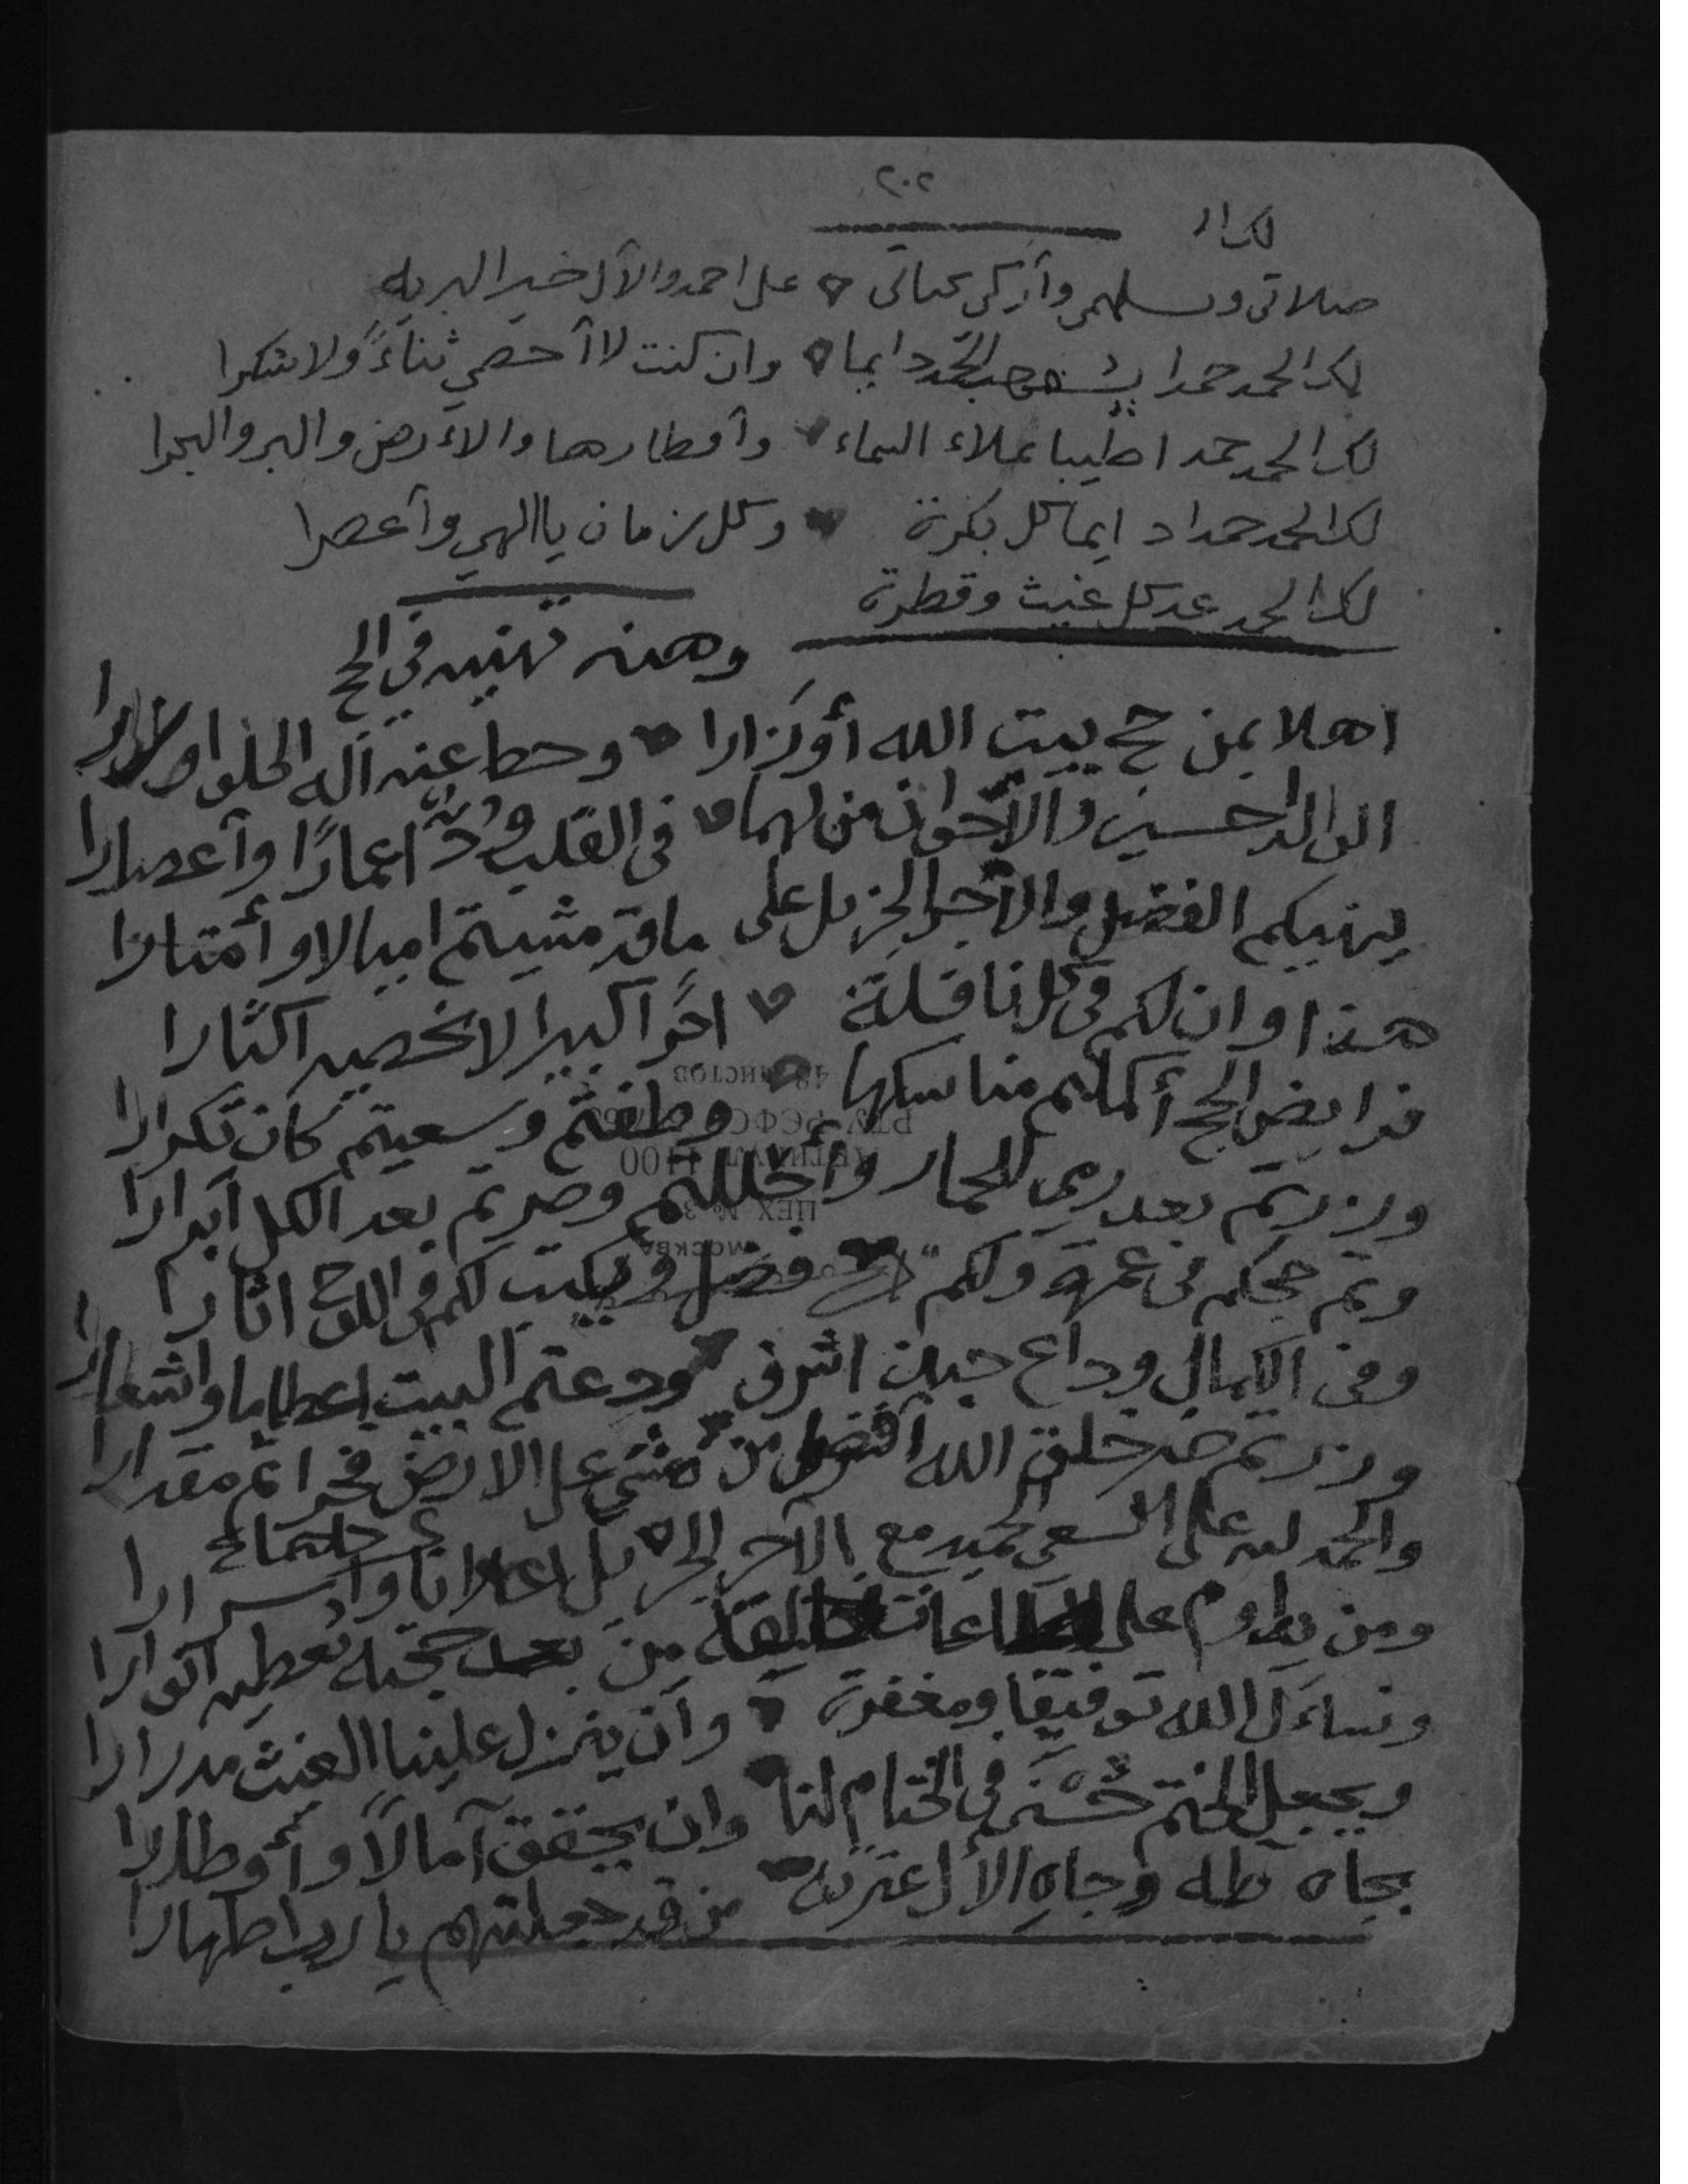 ٢٠٢
لك ا
صلاتي وتسليمي وأزكى تحياتي على احمد والآل خير البريه
لك الحمد حمدا يستوجب الحمد دايما وان كنت لا أحصي ثناءً ولا شكرا
لك الحمد حمدا طيبا يملاء السماء وأقطارها والارض والبر والبحرا
لك الحمد حمدا دايما كل بكرة وكل زمان يا الهي وأعصرا
لك الحمد عد كل غيث وقطرة
وهذه تهنيه في الحج
اهلا بمن حج بيت الله أو زارا وحط عنه اله الخلق اوزارا
الوالد حسين والأخوان من لهما في القلب ودٌّ اعمارًا وأعصارا
يهنيكم الفضل والأجر الجزيل على ما قد مشيتم اميالا وأمتارا
هذا وان لكم في كل نافلة اجرًا كبيرا لا نحصيه اكثارا
فرايض الحج أكملتم مناسكها وطفتم وسعيتم كان تكرارا
وزرتم بعد رمي للجمار وأحللتم وصرتم بعد الكل أبرارا
وتم حجكم في عمرة ولكم فضل ويكتب لكم في اللوح اثارا
وفي الكمال وداع حين اشرف ودعتم البيت اعظاما واشعارا
وزرتم خير خلق الله أفضل من مشى على الارض فخراً ثم مقدارا
والحمد لله على السعي الحميد مع الآجر الجزيل اعلانا وأسرارا
ومن يداوم على الطاعات من بعد حجته تعطيه انوارا
ونساءل الله توفيقا ومغفرة وأن ينزل علينا الغيث مدرارا
ويجعل الختم حُسْنَى في الختام لنا وان يحقق آمالًا وأوطارا
بجاه طه وجاه الأل عترته من قد جعلتهم يا رب اطهارا
48 ЛИСТОВ
РСФСР
АРТИКУЛ 1100
ЦЕХ № 3
МОСКВА